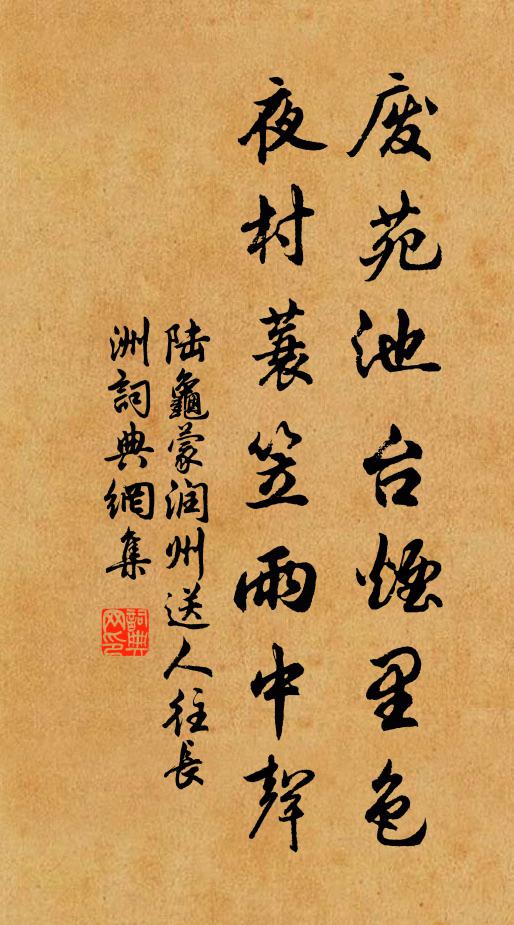 废苑池台煙里色
夜村蓑笠雨中聲
陆龜蒙润州送人往長
洲詞典網集
詞典
网印